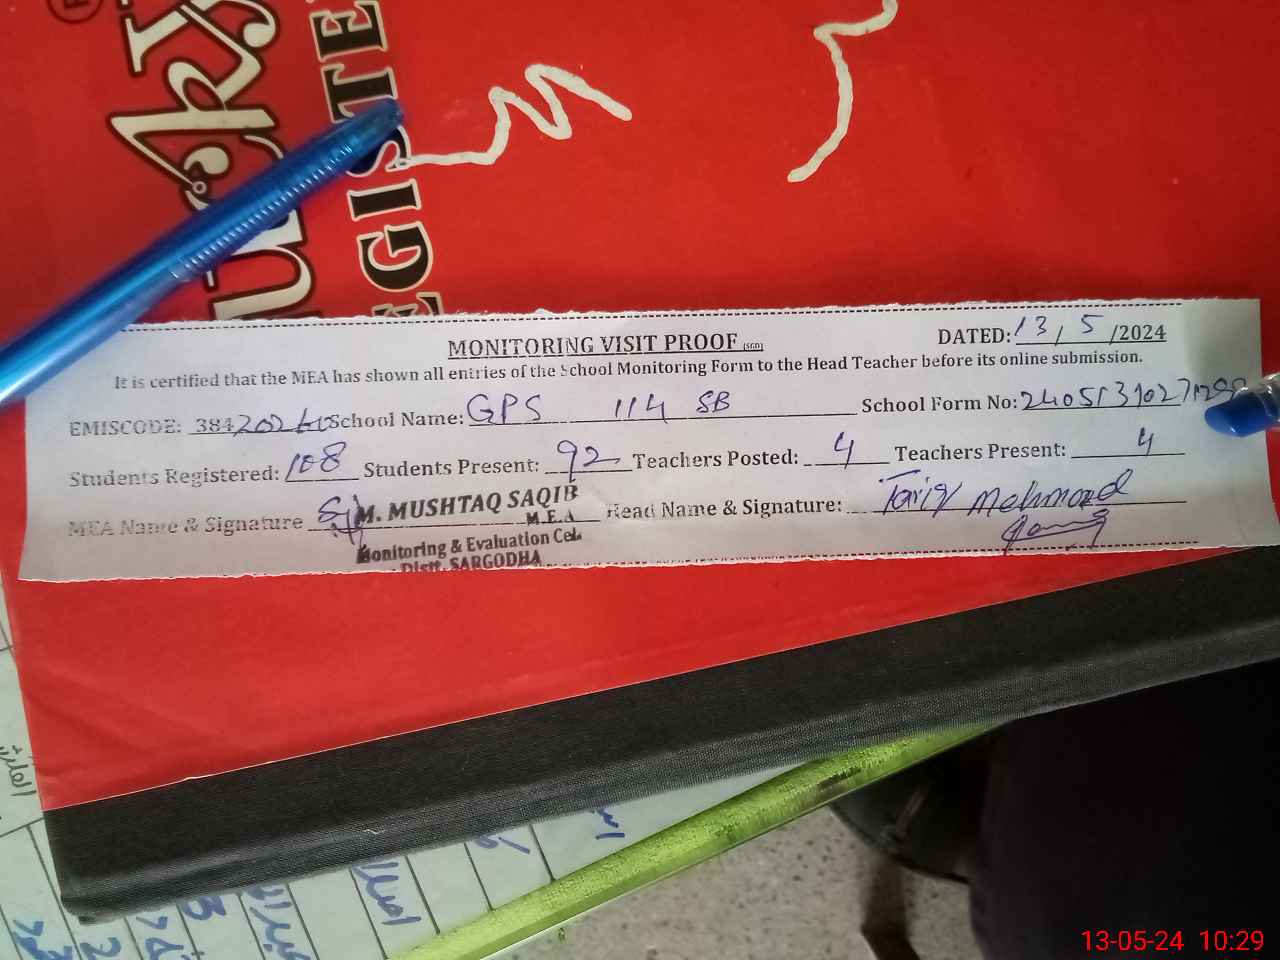 REGISTE
MONITORING VISIT PROOF (SGD)
DATED: 13 / 5 /2024
It is certified that the MEA has shown all entries of the School Monitoring Form to the Head Teacher before its online submission.
EMISCODE: 384 School Name: GPS 114 SB School Form No:
Students Registered: 108 Students Present: 92 Teachers Posted: 4 Teachers Present: 4
MEA Name & Signature M. MUSHTAQ SAQIB Head Name & Signature: Tariq Mehmood
M.E.A
Monitoring & Evaluation Cell
Distt. SARGODHA
13-05-24 10:29